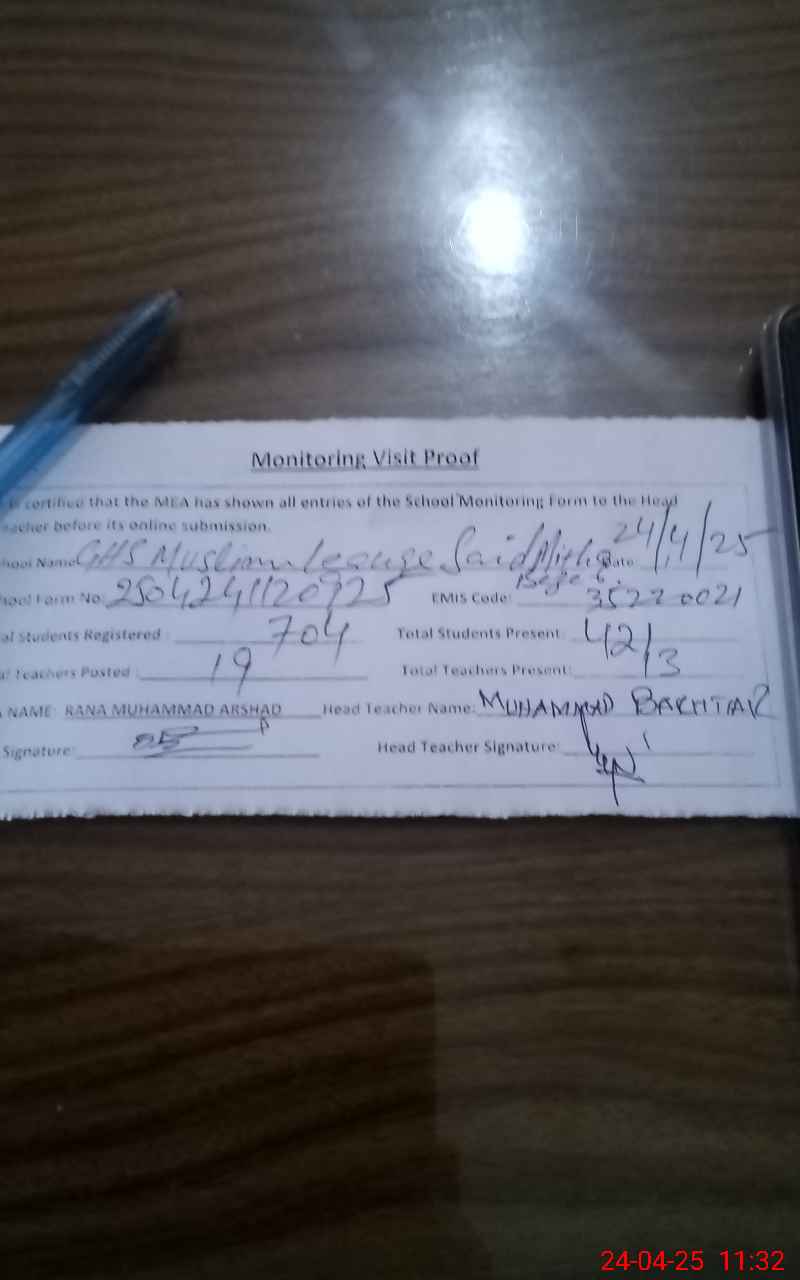 Monitoring Visit Proof
is certified that the MEA has shown all entries of the School Monitoring Form to the Head
eacher before its online submission.
hool Name GHS Muslim Leauge Said Mitha Date 24/4/25
hool Form No: EMIS Code: 35220021
al Students Registered : 704 Total Students Present: 421
al Teachers Posted : 19 Total Teachers Present: 13
NAME: RANA MUHAMMAD ARSHAD Head Teacher Name: MUHAMMAD BAKHTIAR
Signature: Head Teacher Signature:
24-04-25 11:32